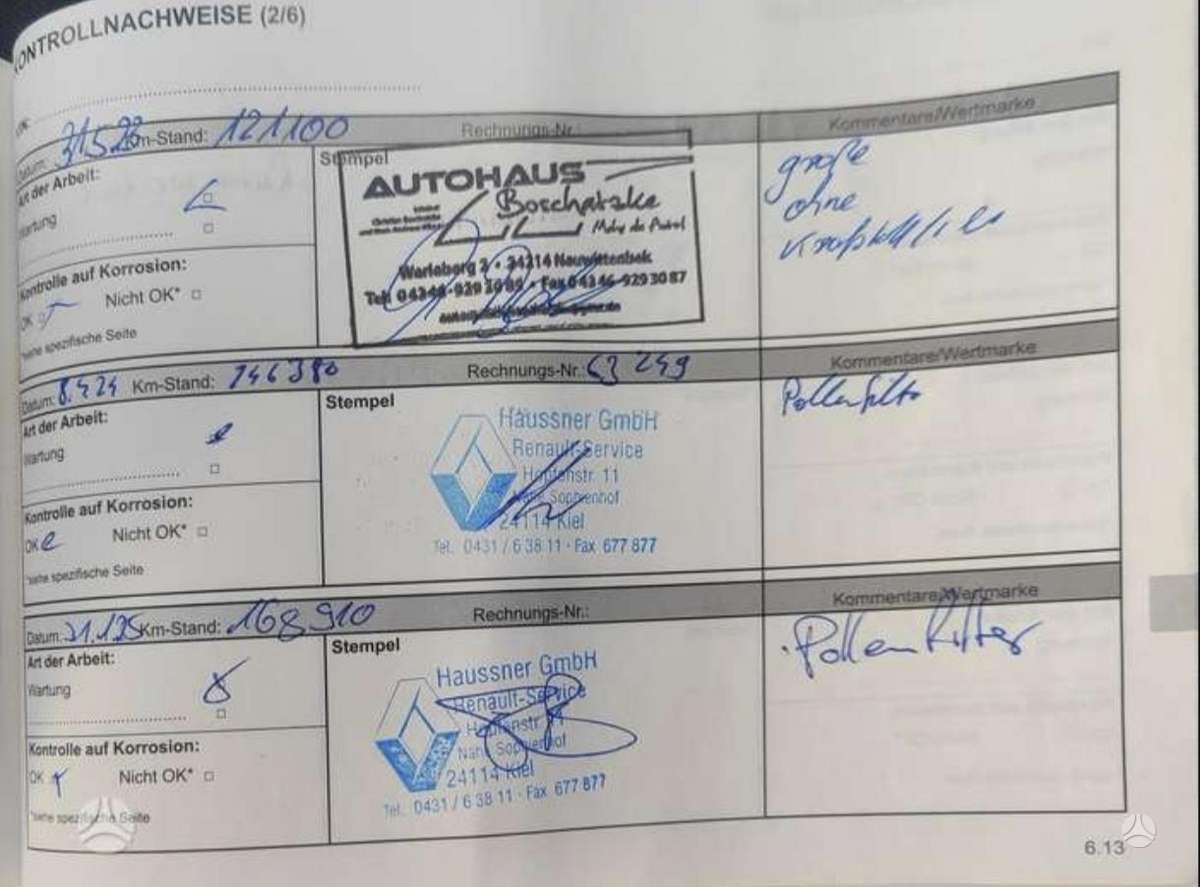 KONTROLLNACHWEISE (2/6)
Datum: 31.5.23 Km-Stand: 121100 Rechnungs-Nr.: Kommentare/Wertmarke
Art der Arbeit:
Stempel
große
Wartung
ohne
Kraftstofffilter
AUTOHAUS
Boschatzke
Warleberg 2 • 24214 Neuwittenbek
Tel. 04346-929 Fax 04346-9293087
Kontrolle auf Korrosion:
OK Nicht OK*
*siehe spezifische Seite
Datum: 8.4.24 Km-Stand: 146380 Rechnungs-Nr.: 63249 Kommentare/Wertmarke
Art der Arbeit:
Stempel
Pollenfilter
Wartung
Haussner GmbH
Renault-Service
Hopfenstr. 11
Nähe Sophienhof
24114 Kiel
Tel. 0431 / 6 38 11 · Fax 677 877
Kontrolle auf Korrosion:
OK Nicht OK*
*siehe spezifische Seite
Datum: 31.1.25 Km-Stand: 168910 Rechnungs-Nr.: Kommentare/Wertmarke
Art der Arbeit:
Stempel
Pollenfilter
Wartung
Haussner GmbH
Renault-Service
Hopfenstr. 11
Nähe Sophienhof
24114 Kiel
Tel. 0431 / 6 38 11 · Fax 677 877
Kontrolle auf Korrosion:
OK Nicht OK*
*siehe spezifische Seite
6.13